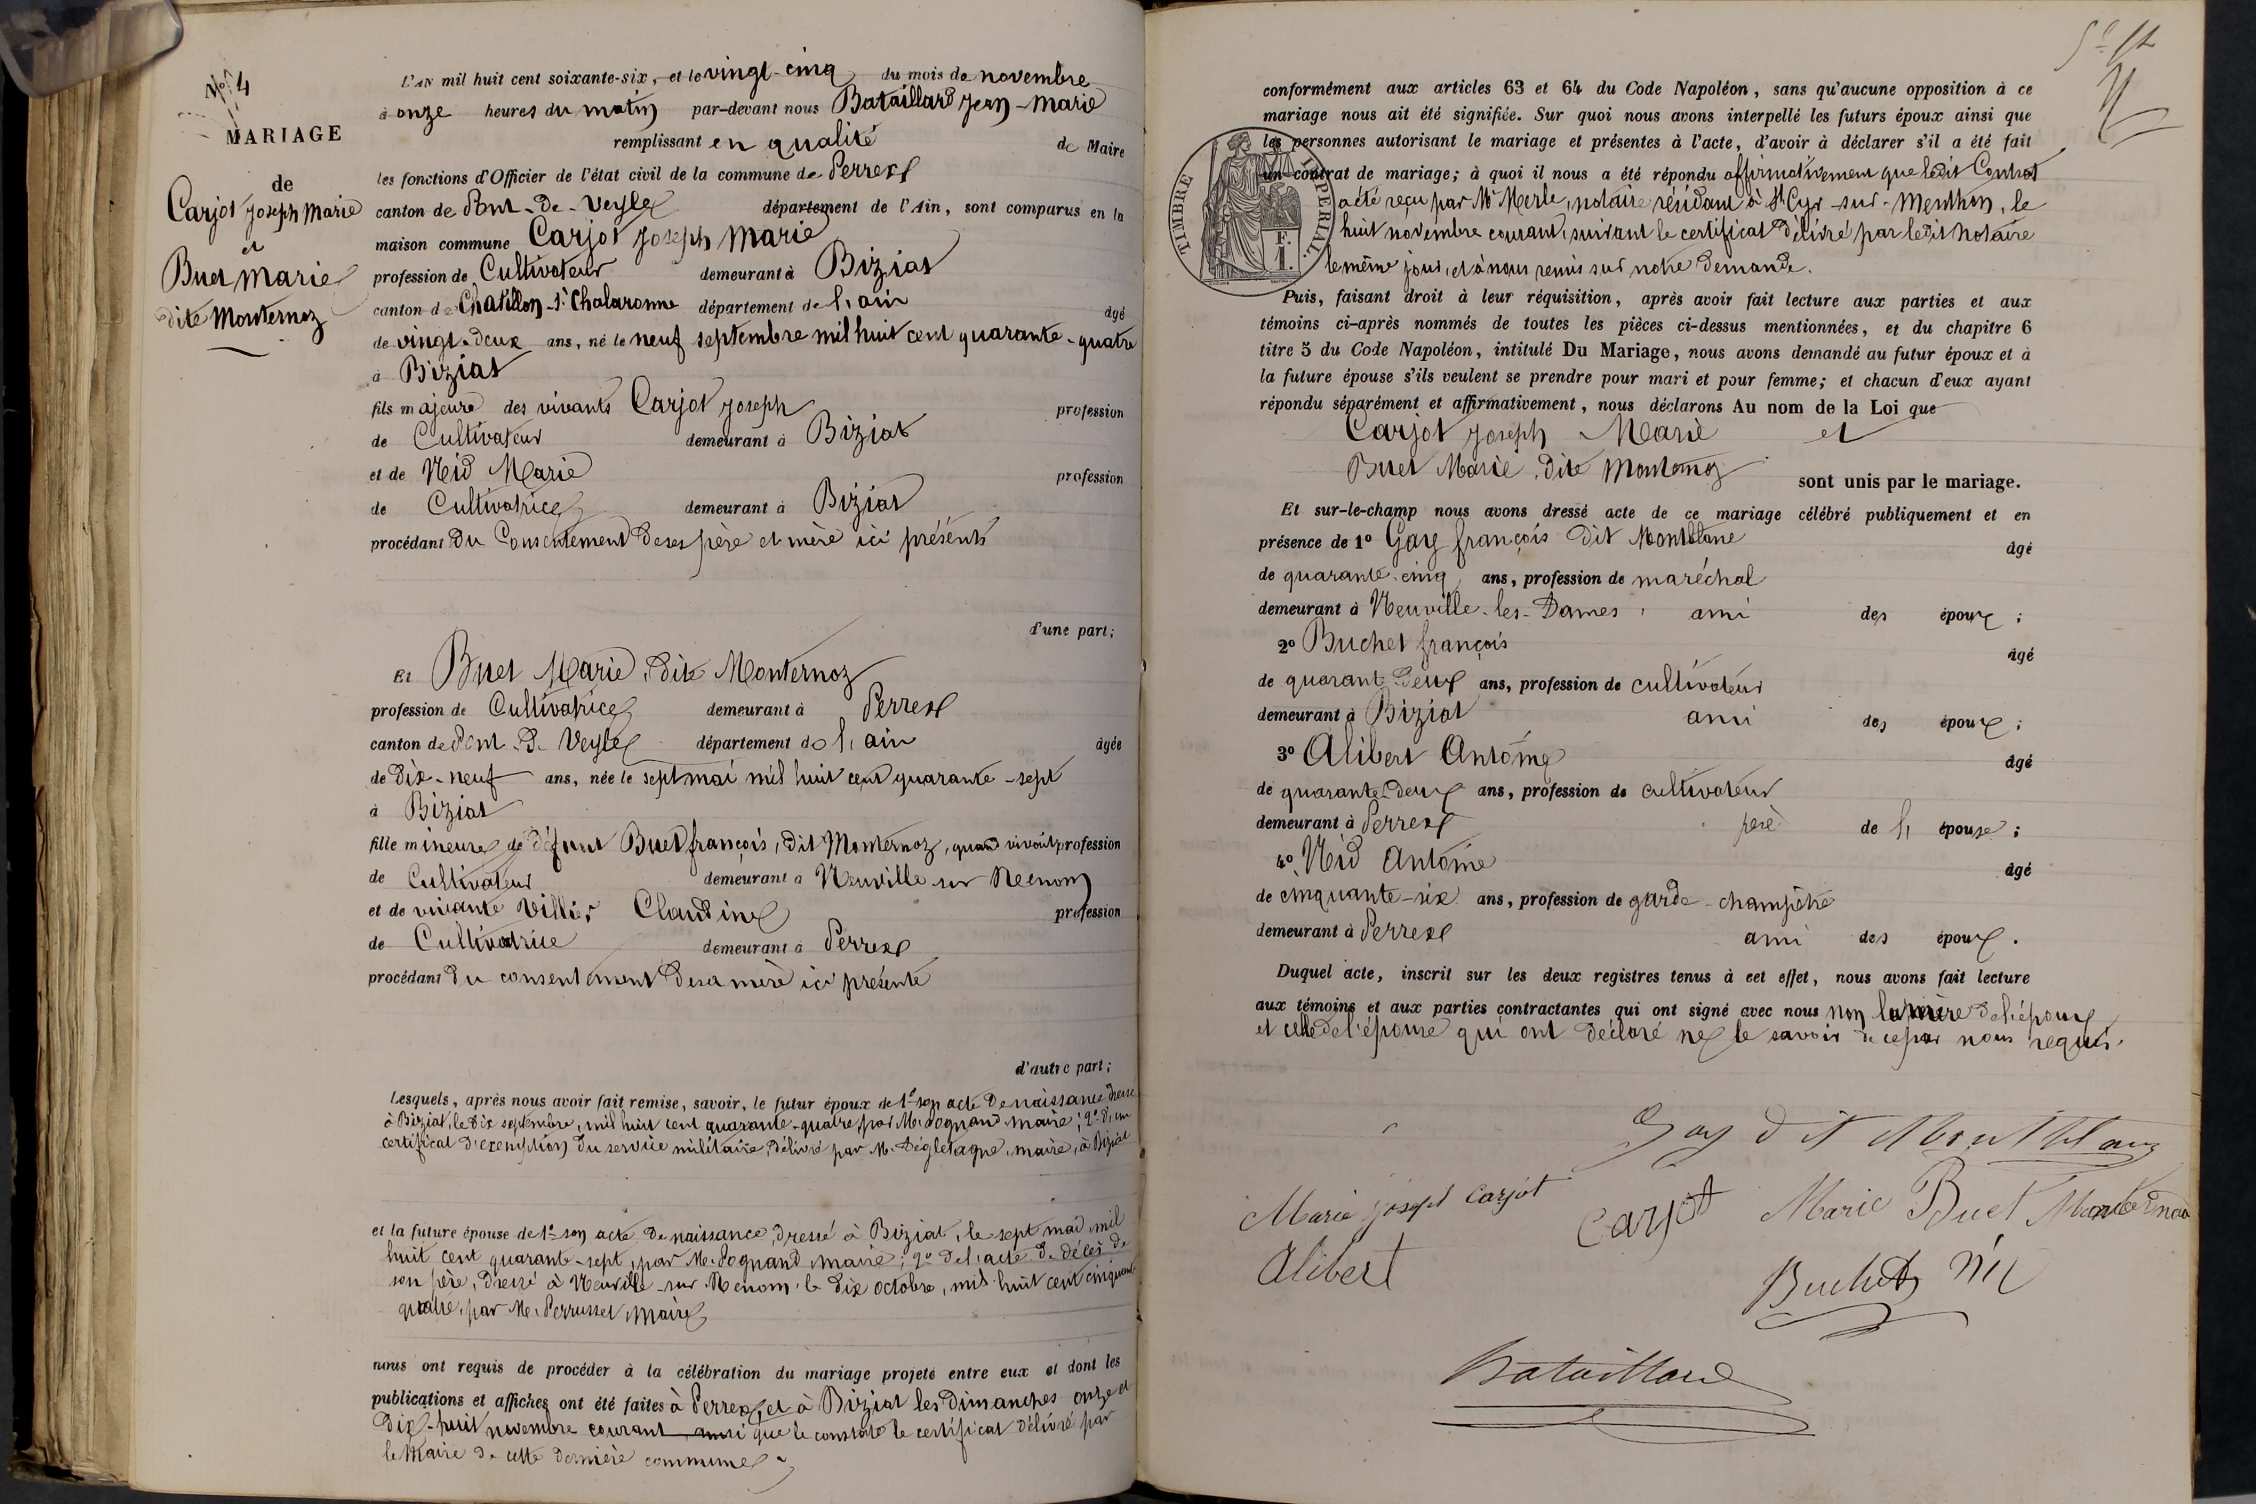 N° 4
MARIAGE
de
Carjot Joseph Marie
et
Buet Marie
dite Monternoz
L'AN mil huit cent soixante-six, et le vingt-cinq du mois de novembre
à onze heures du matin par-devant nous Bataillard Jean-Marie
remplissant en qualité de Maire
les fonctions d'Officier de l'état civil de la commune de Perrex
canton de Pont-de-Veyle département de l'Ain, sont comparus en la
maison commune Carjot Joseph Marie
profession de Cultivateur demeurant à Biziat
canton de Chatillon-s-Chalaronne département de l'ain âgé
de vingt-deux ans, né le neuf septembre mil huit cent quarante-quatre
à Biziat
fils majeur des vivants Carjot Joseph profession
de Cultivateur demeurant à Biziat
et de Nid Marie profession
de Cultivatrice demeurant à Biziat
procédant du Consentement de ses père et mère ici présents
d'une part;
Et Buet Marie, dite Monternoz
profession de Cultivatrice demeurant à Perrex
canton de Pont-de-Veyle département de l'ain âgée
de dix-neuf ans, née le sept mai mil huit cent quarante-sept
à Biziat
fille mineure de défunt Buet françois, dit Monternoz, quand vivait profession
de Cultivateur demeurant à Neuville sur Renom
et de vivante Villier Claudine profession
de Cultivatrice demeurant à Perrex
procédant du consentement de sa mère ici présente
d'autre part;
Lesquels, après nous avoir fait remise, savoir, le futur époux de 1° son acte de naissance dressé
à Biziat, le dix septembre, mil huit cent quarante-quatre par M. Pognand maire; 2° d'un
certificat d'exemption du service militaire, délivré par M. Dégletagne, maire, à Biziat
et la future épouse de 1° son acte de naissance, dressé à Biziat, le sept mai mil
huit cent quarante-sept, par M. Pognand, maire; 2° de l'acte de décès de
son père, dressé à Neuville-sur-Renom le dix octobre, mil huit cent cinquante
quatre, par M. Perrusset, maire
nous ont requis de procéder à la célébration du mariage projeté entre eux et dont les
publications et affiches ont été faites à Perrex, et à Biziat les dimanches onze et
dix-huit novembre courant, ainsi que le constate le certificat délivré par
le Maire de cette dernière commune
conformément aux articles 63 et 64 du Code Napoléon, sans qu'aucune opposition à ce
mariage nous ait été signifiée. Sur quoi nous avons interpellé les futurs époux ainsi que
les personnes autorisant le mariage et présentes à l'acte, d'avoir à déclarer s'il a été fait
un contrat de mariage; à quoi il nous a été répondu affirmativement que ledit Contrat
a été reçu par Me Merle, notaire résidant à St Cyr-sur-Menthon, le
huit novembre courant, suivant le certificat délivré par ledit notaire
le même jour, et à nous remis sur notre demande.
TIMBRE IMPERIAL
F.
1.
Puis, faisant droit à leur réquisition, après avoir fait lecture aux parties et aux
témoins ci-après nommés de toutes les pièces ci-dessus mentionnées, et du chapitre 6
titre 5 du Code Napoléon, intitulé Du Mariage, nous avons demandé au futur époux et à
la future épouse s'ils veulent se prendre pour mari et pour femme; et chacun d'eux ayant
répondu séparément et affirmativement, nous déclarons Au nom de la Loi que
Carjot Joseph Marie et
Buet Marie, dite Monternoz
sont unis par le mariage.
Et sur-le-champ nous avons dressé acte de ce mariage célébré publiquement et en
présence de 1° Gay françois dit Montblanc âgé
de quarante-cinq ans, profession de maréchal
demeurant à Neuville-les-Dames, ami des époux;
2° Buchet françois âgé
de quarante-deux ans, profession de cultivateur
demeurant à Biziat ami des époux;
3° Alibert Antoine âgé
de quarante-deux ans, profession de cultivateur
demeurant à Perrex père de l'épouse;
4° Nid Antoine âgé
de cinquante-six ans, profession de garde-champêtre
demeurant à Perrex ami des époux.
Duquel acte, inscrit sur les deux registres tenus à cet effet, nous avons fait lecture
aux témoins et aux parties contractantes qui ont signé avec nous non la mère de l'époux
et celle de l'épouse qui ont déclaré ne le savoir de ce par nous requis.
Gay dit Montblanc
Marie joseph Carjot Carjot Marie Buet Monternoz
Alibert Buchet Nid
Bataillard